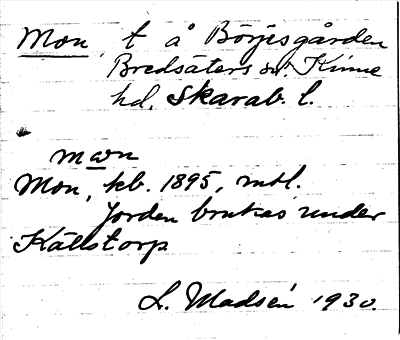 Mon, t å Börjesgården
Bredsäters sn. Kinne
hd. Skarab. l.
mωn
Mon, kb. 1895, mtl.
Jorden brukas under
Källstorp
L. Madsén 1930.